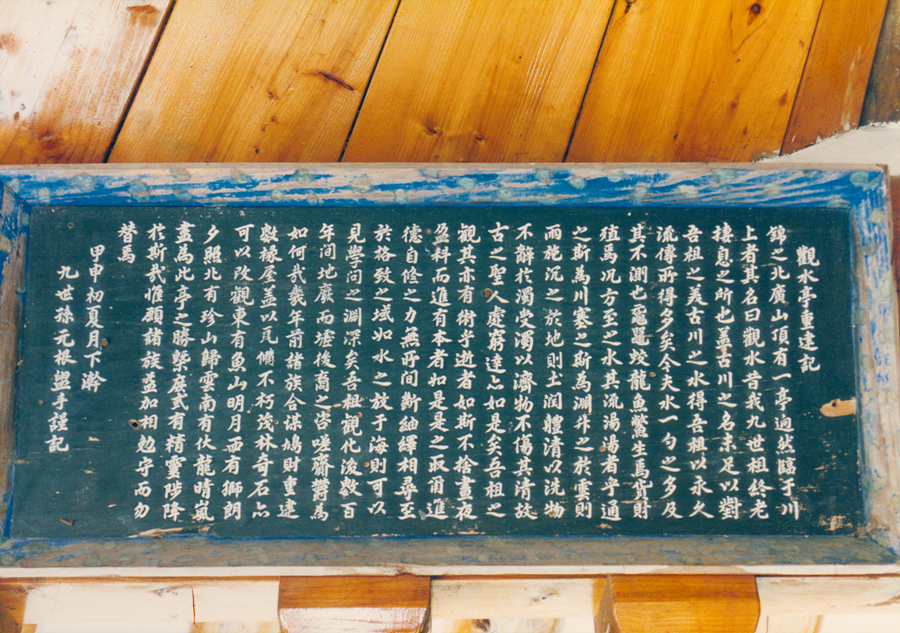 觀水亭重建記
錦之北廣山頂有一亭逈然臨于川
上者其名曰觀水昔我九世祖終老
棲息之所也盖古川之名未足以對
吾祖之美古川之水得吾祖以永久
流傳所得多矣今夫水一勺之多及
其不測也黿鼉蛟龍魚鱉生焉貨財
殖焉况方至之水其流湯湯者乎通
之斯為川塞之斯為淵升之於雲則
雨施沉之於地則土潤體清以洗物
不辭於濁受濁以濟物不傷其清故
古之聖人處窮達亦如是矣吾祖之
觀其亦有術乎逝者如斯不捨晝夜
盈科而進有本者如是是之取爾進
德自修之力無所間斷紬繹相尋至
於格致之域如水之放于海則可以
見學問之淵深矣吾祖觀化後數百
年間地廢而墟後裔之咨嗟齎欝為
如何哉幾年前諸族合謀鳩財重建
數椽屋盖以瓦備不朽茂林奇石亦
可以改觀東有魚山明月西有獅朗
夕照北有珍山歸雲南有伏龍晴嵐
盡為此亭之勝槩庭式有精靈陟降
於斯哉惟願諸族益加相勉守而勿
替焉
甲申初夏月下澣
九世孫元根盥手謹記